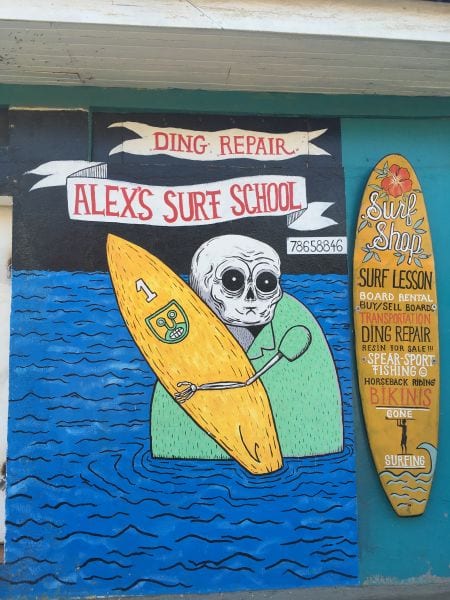 DING REPAIR
ALEX'S SURF SCHOOL
78658846
1
Surf
Shop
SURF LESSON
BOARD RENTAL
BUY/SELL BOARDS
TRANSPORTATION
DING REPAIR
RESIN FOR SALE!!!
-SPEAR-SPORT-
FISHING
HORSEBACK RIDING
BIKINIS
GONE
SURFING